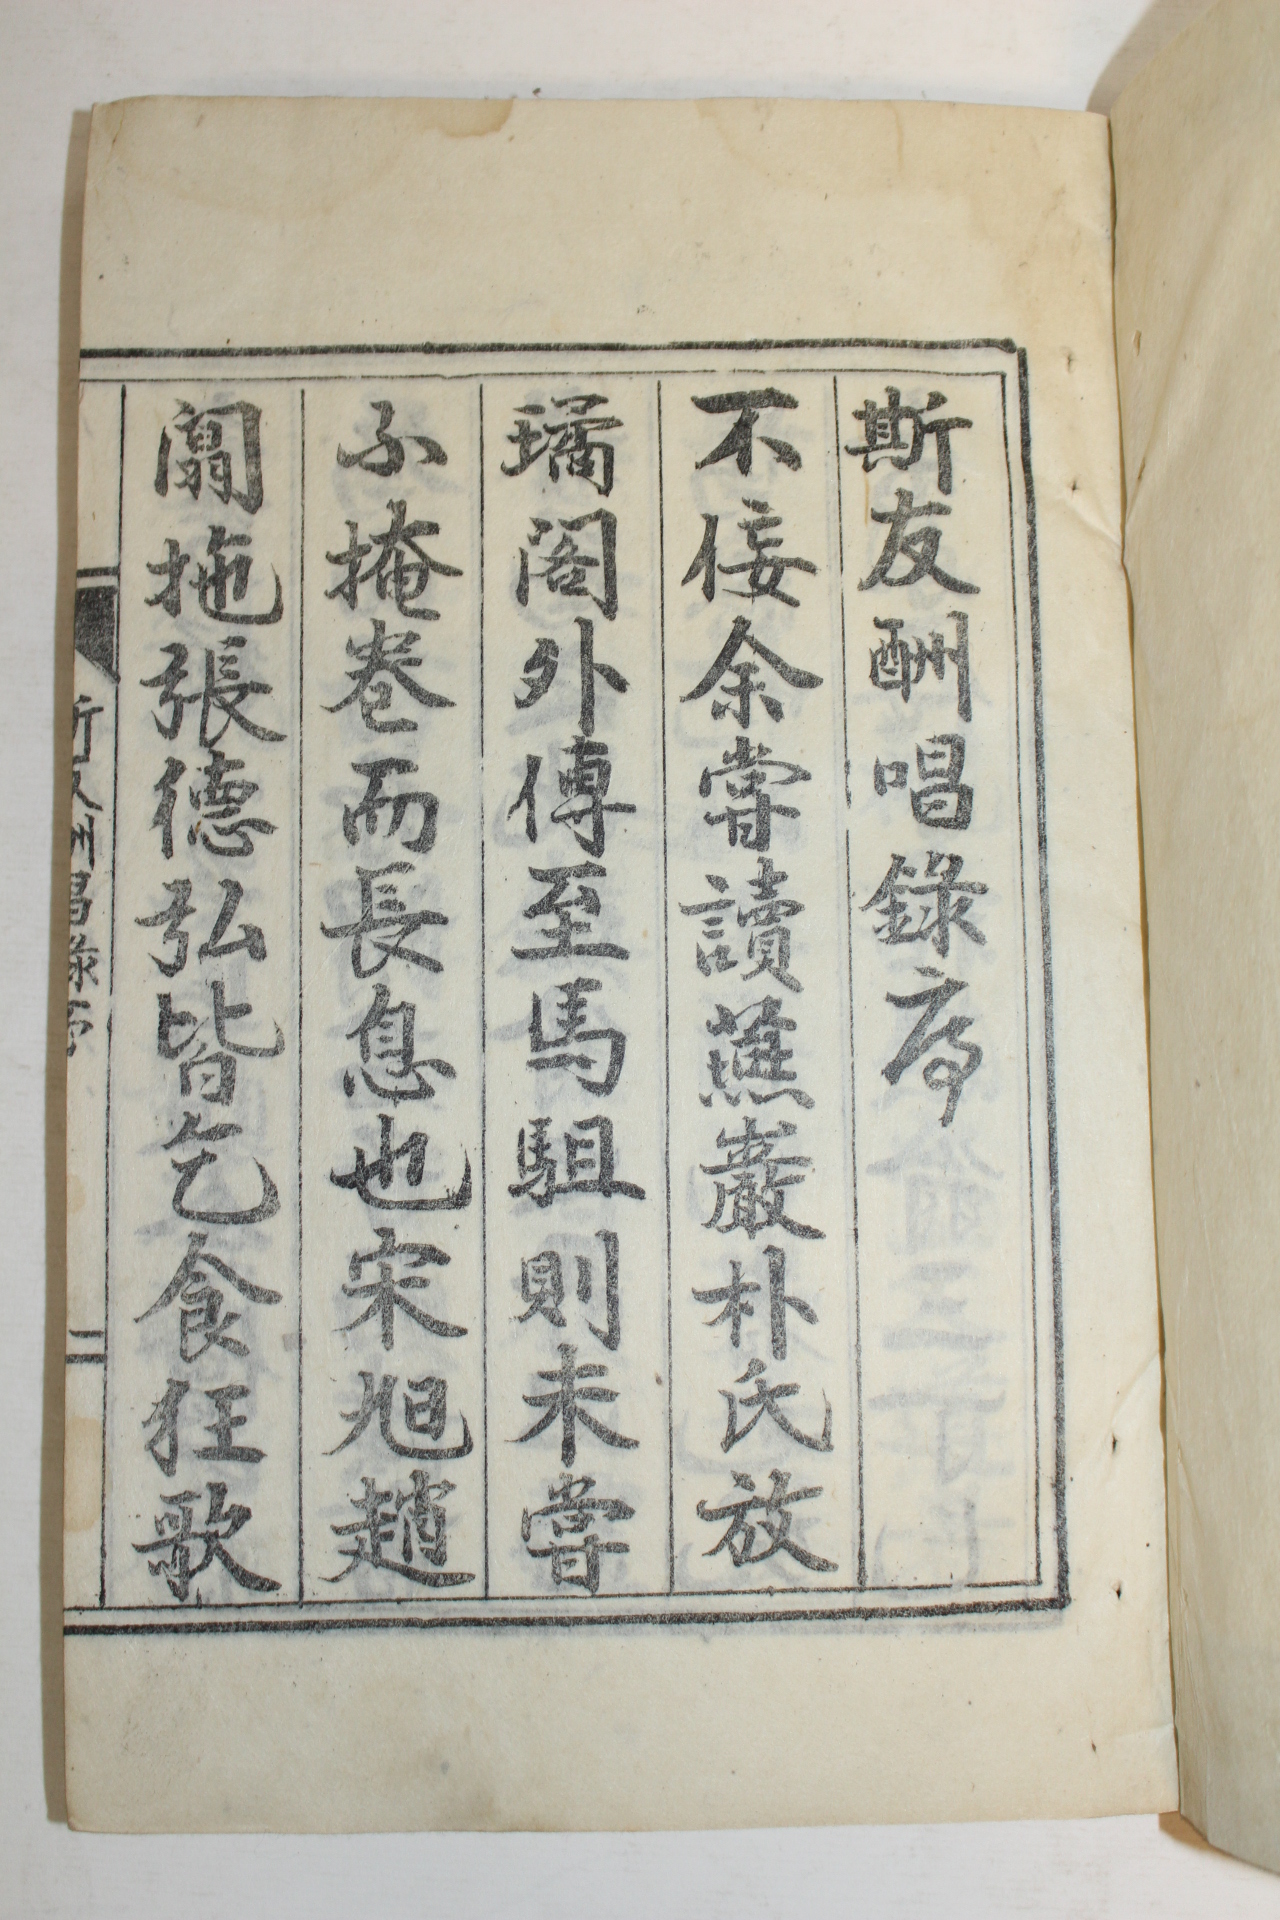 斯友酬唱錄序
不佞余甞讀燕巖朴氏放
璚閣外傳至馬駔則未甞
不掩卷而長息也宋旭趙
闒拖張德弘皆乞食狂歌
斯友酬唱錄序 二